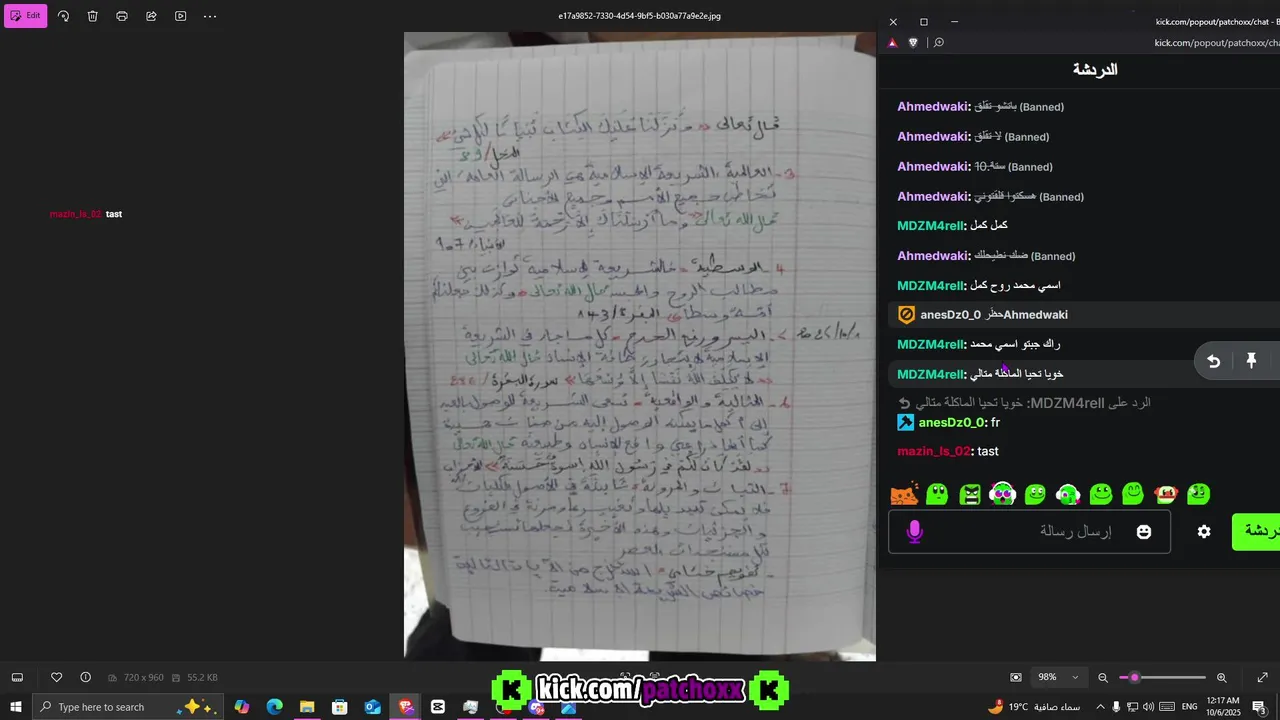 Edit
e17a9852-7330-4d54-9bf5-b030a77a9e2e.jpg
kick.com/popout/patchoxx/chat - B
kick.com/popout/patchoxx/cha
الدردشة
mazin_ls_02 tast
قال تعالى «ونزلنا عليك الكتاب تبيانا لكل شيء»
النحل/89
3- العالمية: الشريعة الإسلامية هي الرسالة العامة التي
تخاطب جميع الأمم وجميع الأجناس
قال الله تعالى «وما أرسلناك إلا رحمة للعالمين»
الأنبياء/107
4- الوسطية: فالشريعة الإسلامية توازن بين
مطالب الروح والجسد قال الله تعالى «وكذلك جعلناكم
أمة وسطا» البقرة/143
اليسر ورفع الحرج: كل ما جاء في الشريعة
الإسلامية طاقة الإنسان قال الله تعالى
«لا يكلف الله نفسا إلا وسعها» سورة البقرة/286
6- المثالية والواقعية: تسعى الشريعة للوصول
إلى الوصول إليه من
كما أنها تراعي واقع الإنسان وطبيعته قال الله تعالى
«لقد كان لكم في رسول الله أسوة حسنة» الأحزاب
7- الثبات والمرونة: ثابتة في الأصول والكليات
فلا يمكن تبديلها أو تغييرها ومرنة في الفروع
والجزئيات وهذه الأخيرة تجعلها تستوعب
كل مستجدات العصر
- تقويم ختامي: استخرج من الآيات التالية
خصائص الشريعة الإسلامية.
Ahmedwaki: باتشو تقلق (Banned)
Ahmedwaki: لا تقلق (Banned)
Ahmedwaki: 10.سنة (Banned)
Ahmedwaki: هسكتوا قلقتوني (Banned)
MDZM4rell: كمل كمل
Ahmedwaki: ضك نطيحلك (Banned)
MDZM4rell: اسمي محمد روح كمل
anesDz0_0 حظر Ahmedwaki
MDZM4rell: راك جبتو اسمي محمد
MDZM4rell: خويا تحيا الماكلة متالي
الرد على MDZM4rell: خويا تحيا الماكلة متالي
anesDz0_0: fr
mazin_ls_02: tast
إرسال رسالة
دردشة
720 x 960
55.2 KB
kick.com/patchoxx
Type here to search
19°C سماء صافية
ENG
12:17 AM
10/6/2025